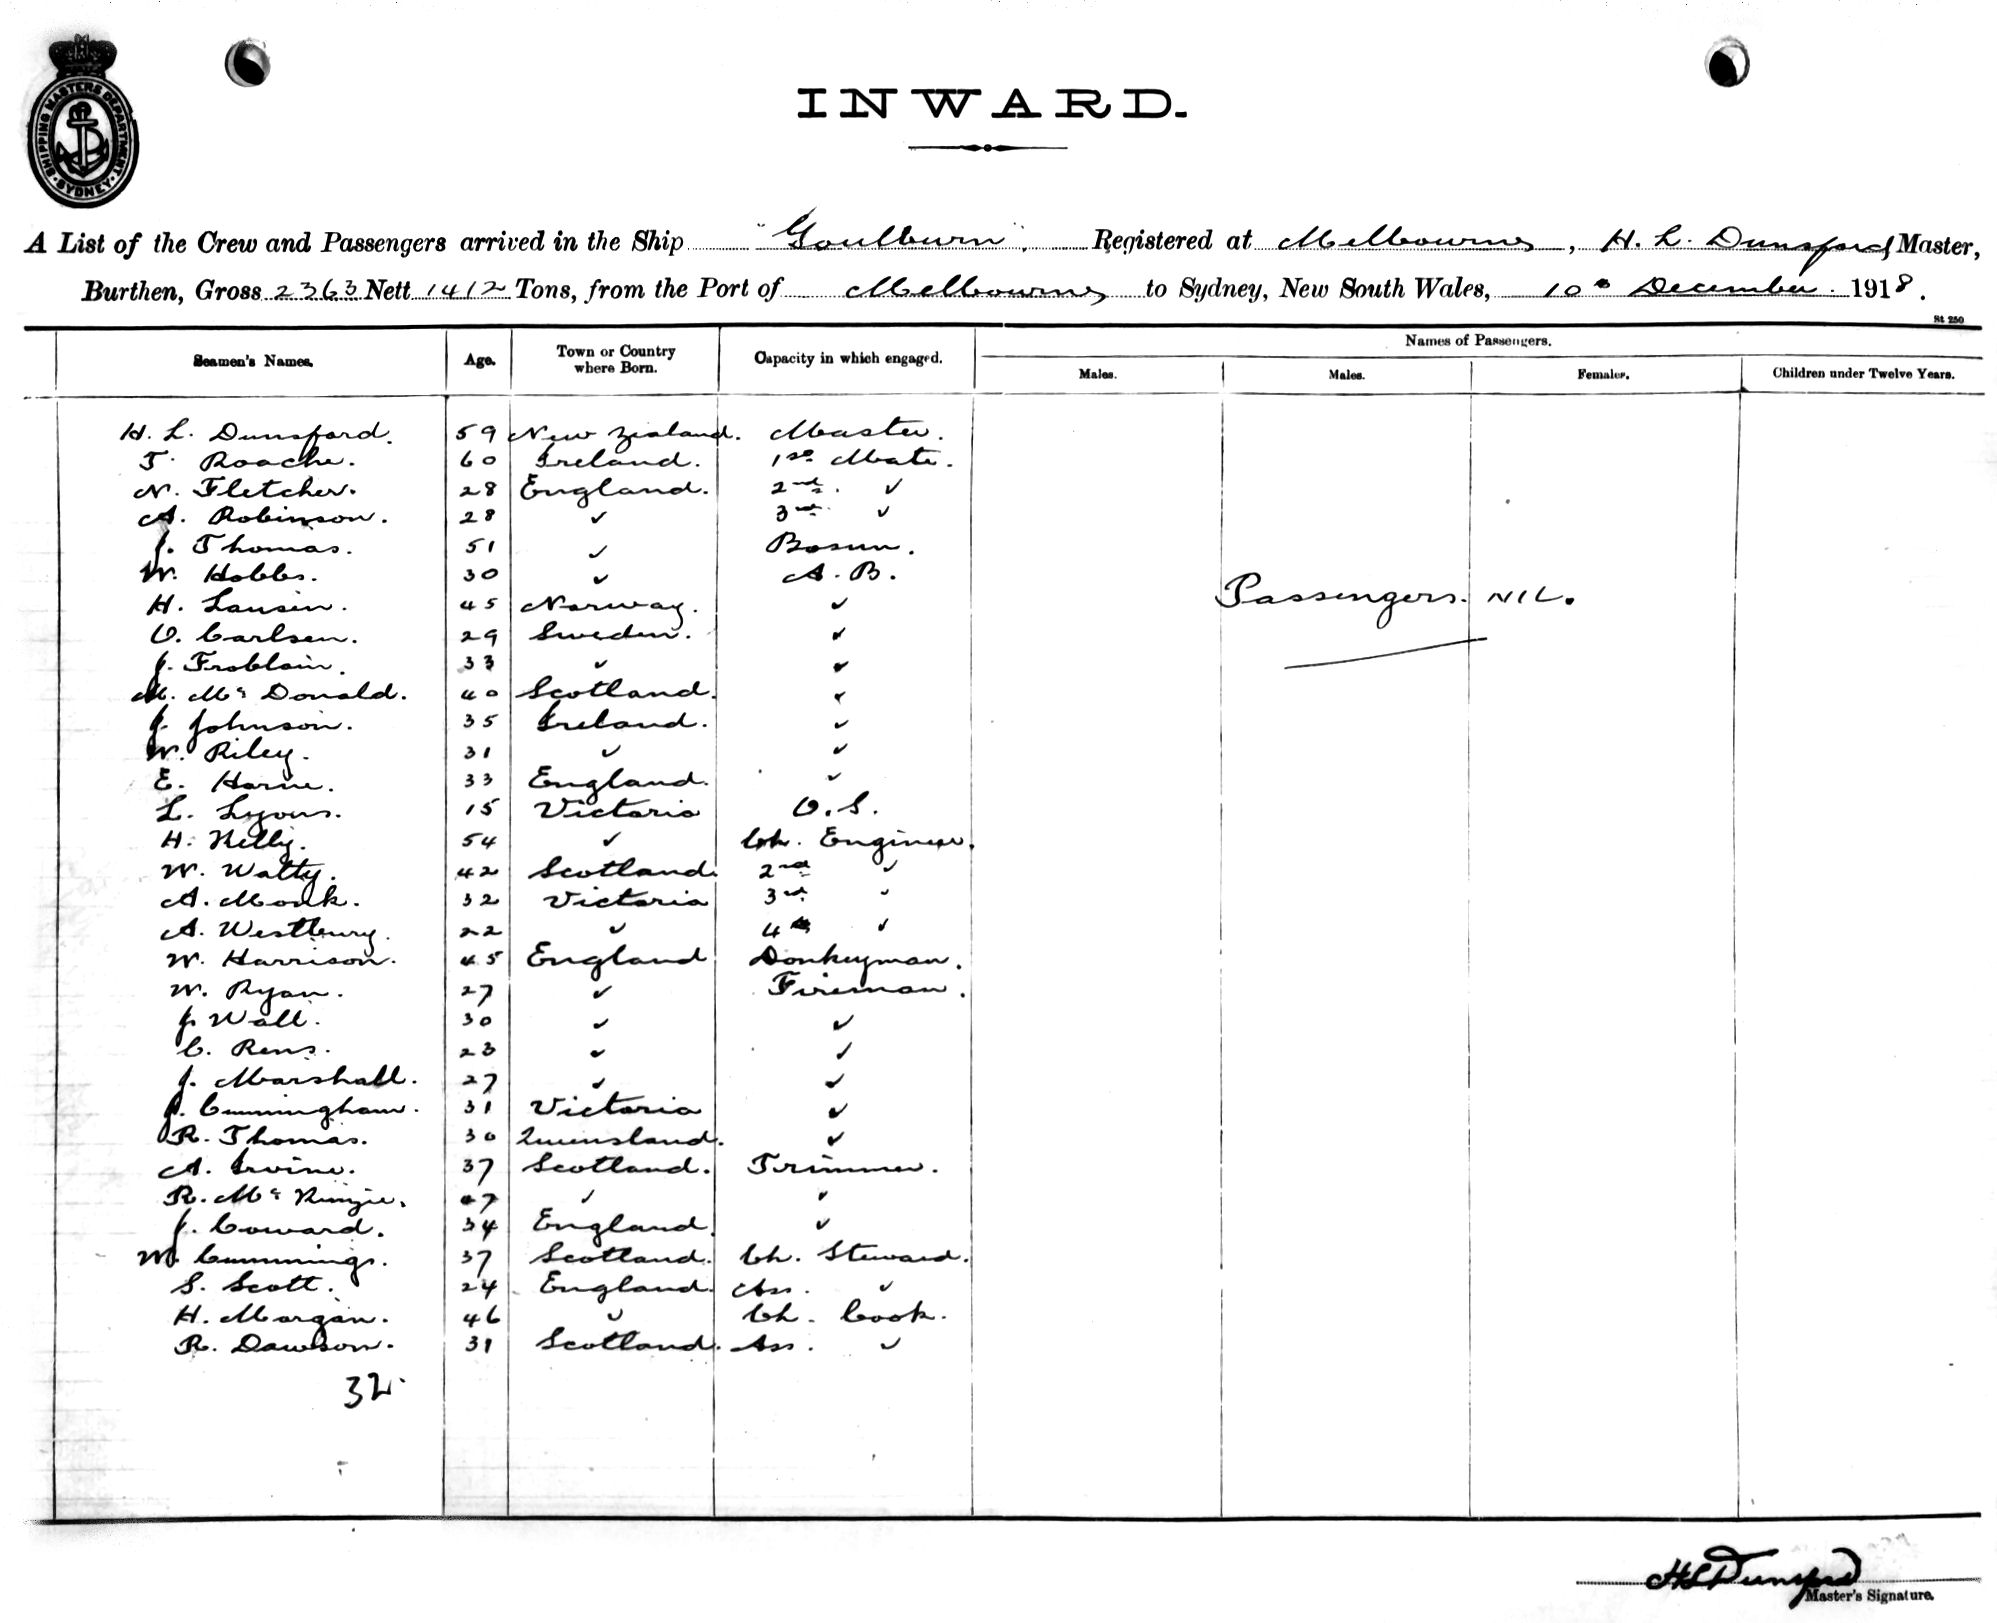 SHIPPING MASTERS DEPARTMENT
SYDNEY
INWARD.
A List of the Crew and Passengers arrived in the Ship "Goulburn". Registered at Melbourne, H. L. Dunsford, Master,
Burthen, Gross 2363 Nett 1412 Tons, from the Port of Melbourne to Sydney, New South Wales, 10 December. 1918.
St 250
Seamen's Names. Age. Town or Country where Born. Capacity in which engaged. Names of Passengers.
Males. Males. Females. Children under Twelve Years.
H. L. Dunsford. 59 New Zealand. Master.
T. Roache. 60 Ireland. 1st Mate.
N. Fletcher. 28 England. 2nd. ✓
A. Robinson. 28 ✓ 3rd ✓
J. Thomas. 51 ✓ Bosun.
W. Hobbs. 30 ✓ A. B.
H. Lansen. 45 Norway. ✓
O. Carlsen. 29 Sweden. ✓
J. Froblom. 33 ✓ ✓
M. Mc Donald. 40 Scotland. ✓
J. Johnson. 35 Ireland. ✓
W. Riley. 31 ✓ ✓
E. Horne. 33 England. ✓
L. Lyons. 15 Victoria O. S.
H. Kelly. 54 ✓ Ch. Engineer.
W. Watty. 42 Scotland. 2nd ✓
A. Monk. 32 Victoria 3rd ✓
A. Westbury. 22 ✓ 4th ✓
W. Harrison. 45 England Donkeyman.
W. Ryan. 27 ✓ Fireman.
J. Wall. 30 ✓ ✓
C. Rens. 23 ✓ ✓
J. Marshall. 27 ✓ ✓
J. Cunningham. 31 Victoria ✓
R. Thomas. 30 Queensland. ✓
A. Irvine. 37 Scotland. Trimmer.
R. Mc Kinzie. 47 ✓ ✓
J. Coward. 34 England. ✓
W. Cummings. 37 Scotland. Ch. Steward.
S. Scott. 24 England Ass. ✓
H. Morgan. 46 ✓ Ch. Cook.
R. Dawson. 31 Scotland. Ass. ✓
32
Passengers. NIL.
H L Dunsford
Master's Signature.